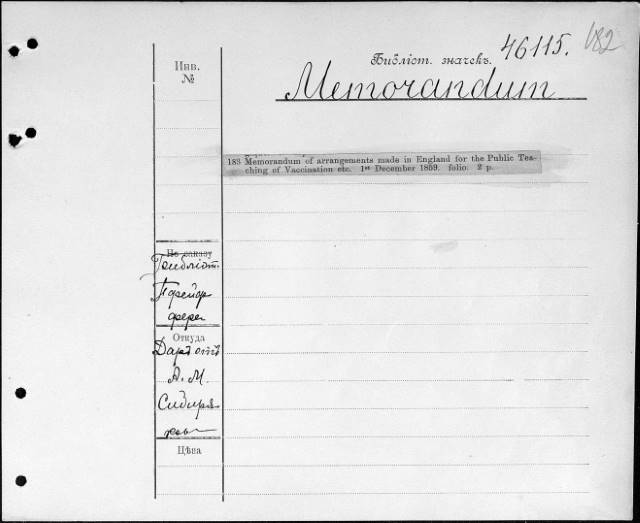 46115. 182
Библіот. значекъ.
Инв.
№
Memorandum
183 Memorandum of arrangements made in England for the Public Tea-
ching of Vaccination etc. 1st December 1859. folio. 2 p.
По заказу
Библіот.
Пфейф
фера
Откуда
Даръ отъ
А. М.
Сибиря
кова
Цѣна